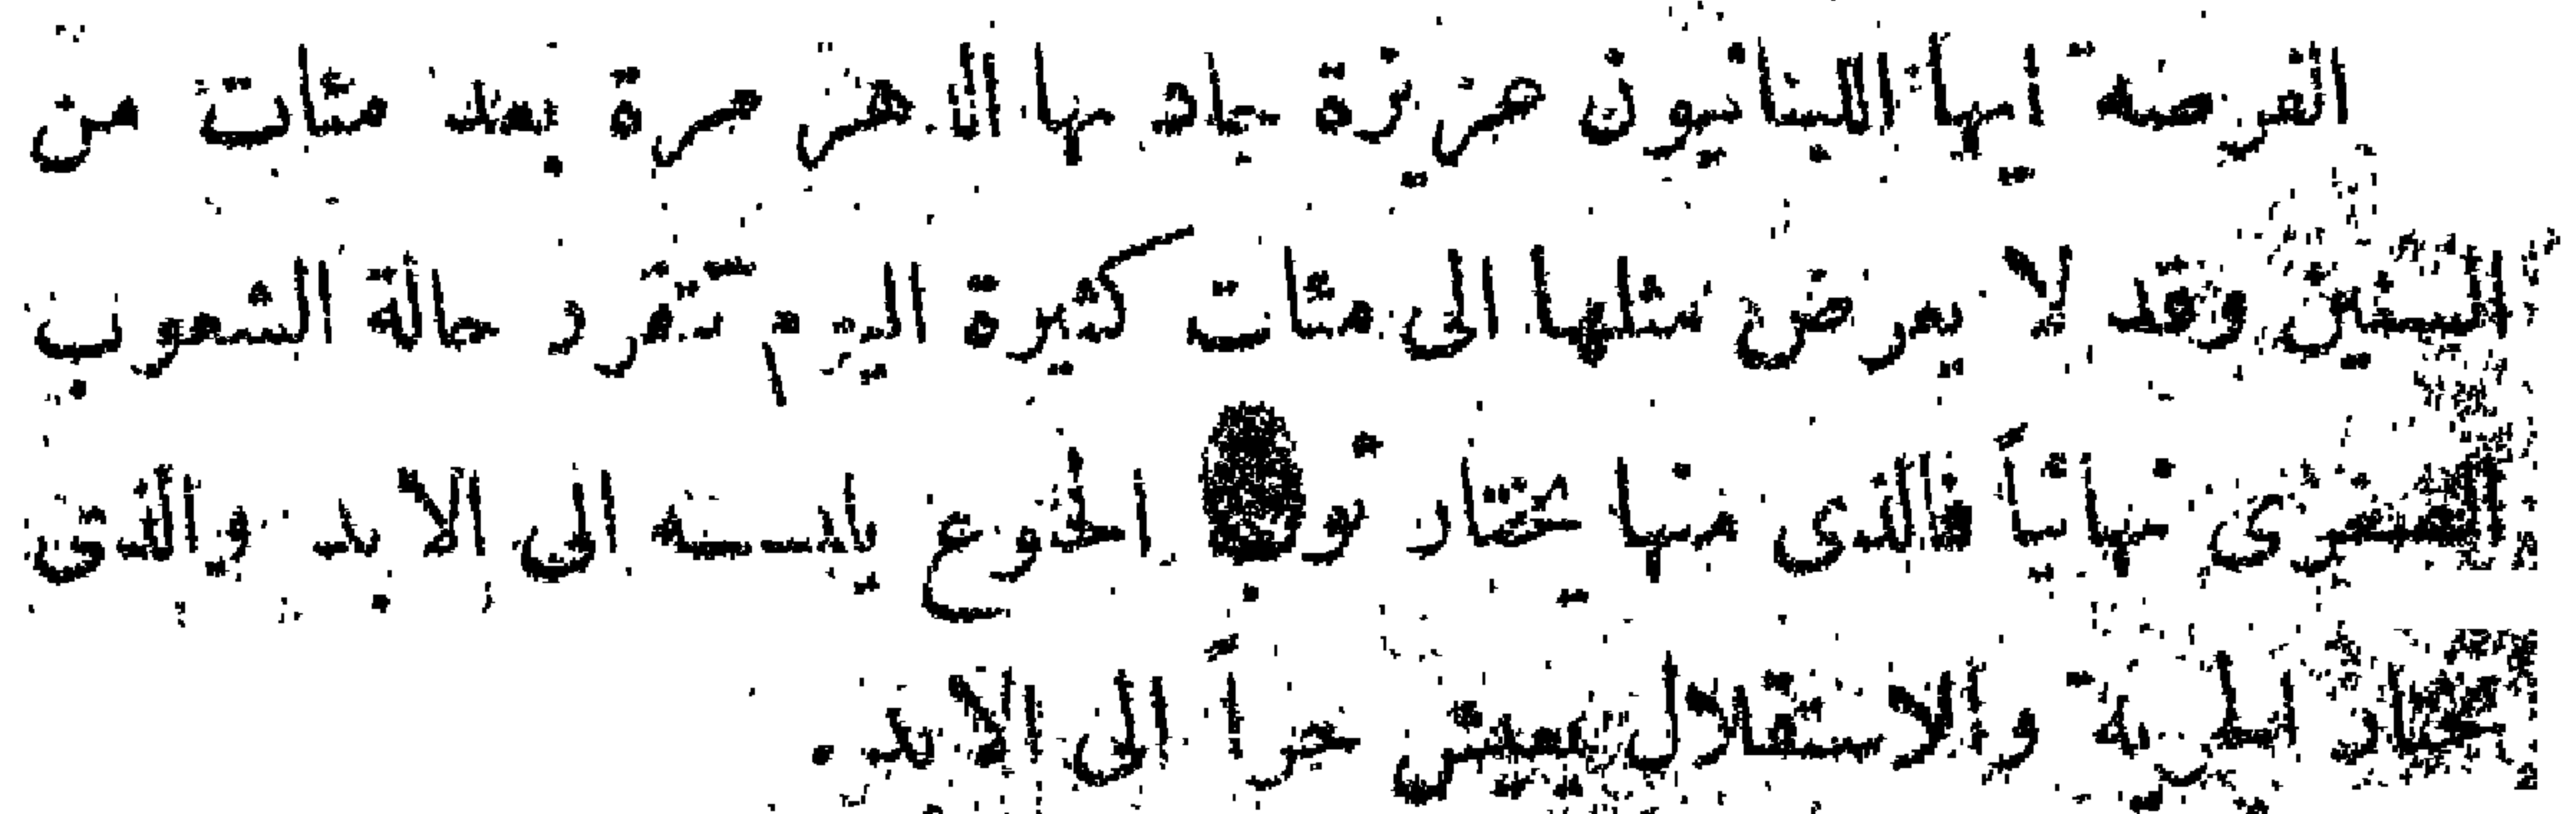 الفرصة ايها اللبنانيون عزيزة يجاد بها الدهر مرة بعد مئات من
السنين وقد لا يعرض مثلها الى مئات كثيرة اليوم تتقرر حالة الشعوب
الصغرى نهائياً فالذى منها يختار ثوب الخنوع يلبسه الى الابد والذى
يختار الحرية والاستقلال يعيش حراً الى الابد .